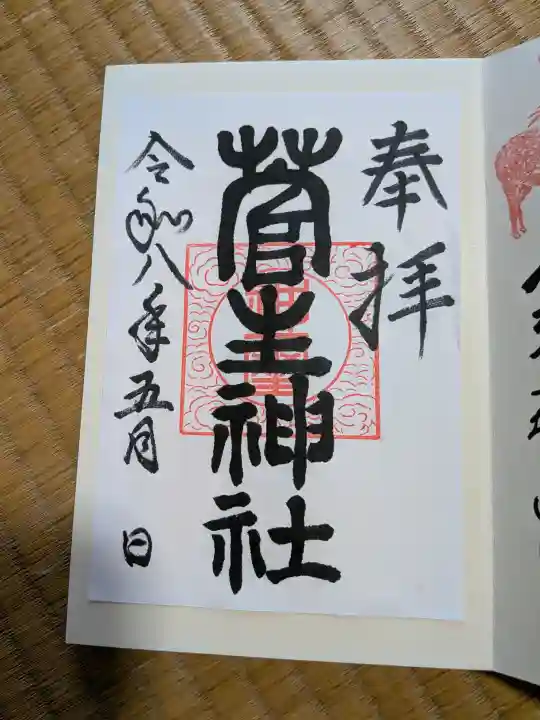 奉拝
菅生神社
令和八年五月 日